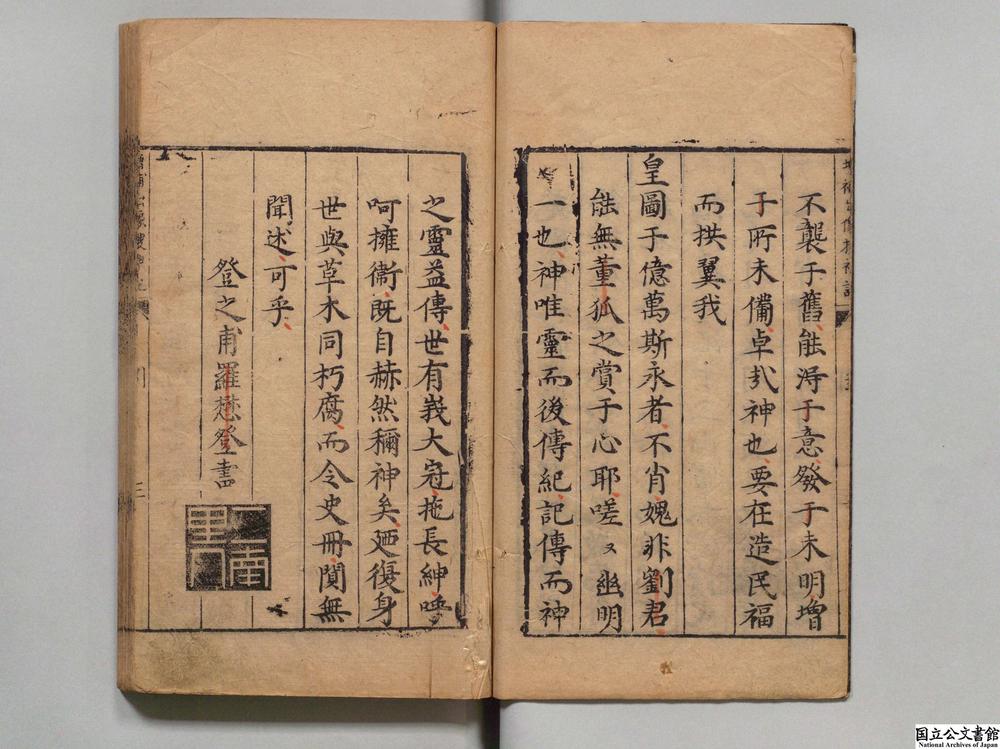 不襲于舊能淂于意發于未明增
于所未備卓㢤神也要在造民福
而拱翼我
皇圖于億萬斯永者不肖媿非劉君
能無董狐之賞于心耶嗟々幽明
一也神唯靈而後傳紀記傳而神
之靈益傳世有峩大冠拖長紳呼
呵擁衛既自赫然稱神矣廼復身
世與草木同朽腐而令史冊闃無
聞述可乎
登之甫羅懋登書
國立公文書館
National Archives of Japan